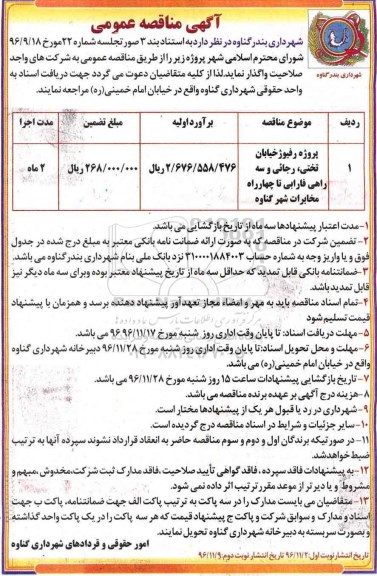 آگهی مناقصه عمومی
شهرداری بندر گناوه در نظر دارد به استناد بند 3 صورتجلسه شماره 22 مورخ 96/9/18
شورای محترم اسلامی شهر پروژه زیر را از طریق مناقصه عمومی به شرکت های واجد
صلاحیت واگذار نماید. لذا از کلیه متقاضیان دعوت می گردد جهت دریافت اسناد به
واحد حقوقی شهرداری گناوه واقع در خیابان امام خمینی(ره) مراجعه نمایند.
شهرداری بندر گناوه
ردیف موضوع مناقصه برآورد اولیه مبلغ تضمین مدت اجرا
1 پروژه رفیوژ خیابان تختی، رجائی و سه راهی فارابی تا چهارراه مخابرات شهر گناوه 2/676/558/476 ریال 268/000/000 ریال 2 ماه
1-مدت اعتبار پیشنهادها سه ماه از تاریخ بازگشایی می باشد.
2- تضمین شرکت در مناقصه که به صورت ارائه ضمانت نامه بانکی معتبر به مبلغ درج شده در جدول
فوق و یا واریز وجه به شماره حساب 3100001884003 نزد بانک ملی بنام شهرداری بندر گناوه می باشد.
3- ضمانتنامه بانکی قابل تمدید که حداقل سه ماه از تاریخ پیشنهاد معتبر بوده و برای سه ماه دیگر نیز
قابل تمدید باشد.
4-تمام اسناد مناقصه باید به مهر و امضاء مجاز تعهدآور پیشنهاد دهنده برسد و همزمان با پیشنهاد
قیمت تسلیم شود
5-مهلت دریافت اسناد: تا پایان وقت اداری روز شنبه مورخ 96/11/17 96 می باشد.
6-مهلت و محل تحویل اسناد: تا پایان وقت اداری روز شنبه مورخ 96/11/28 دبیرخانه شهرداری گناوه
واقع در خیابان امام خمینی(ره) می باشد.
7- تاریخ بازگشایی پیشنهادات ساعت 15 روز شنبه مورخ 96/11/28 می باشد.
8-هزینه درج آگهی بر عهده برنده مناقصه می باشد.
9-شهرداری در رد یا قبول هر یک از پیشنهادها مختار است.
10-سایر جزئیات و شرایط در اسناد مناقصه درج گردیده است.
11-در صورتیکه برندگان اول و دوم و سوم مناقصه حاضر به انعقاد قرارداد نشوند سپرده آنها به ترتیب
ضبط خواهد شد.
12-به پیشنهادات فاقد سپرده ، فاقد گواهی تأیید صلاحیت ،فاقد مدارک ثبت شرکت، مخدوش، مبهم و
مشروط و یا دیرتر از موعد مقرر ترتیب اثر داده نمی شود.
13- متقاضیان می بایست مدارک را در سه پاکت به ترتیب پاکت الف جهت ضمانتنامه، پاکت ب جهت
اسناد و مدارک و سوابق شرکت و پاکت ج پیشنهاد قیمت که هر سه پاکت را در یک پاکت واحد گذاشته
و بصورت سربسته به دبیرخانه شهرداری گناوه تحویل نمایند.
امور حقوقی و قردادهای شهرداری گناوه
تاریخ انتشار نوبت اول: 96/11/2 تاریخ انتشار نوبت دوم: 96/11/9